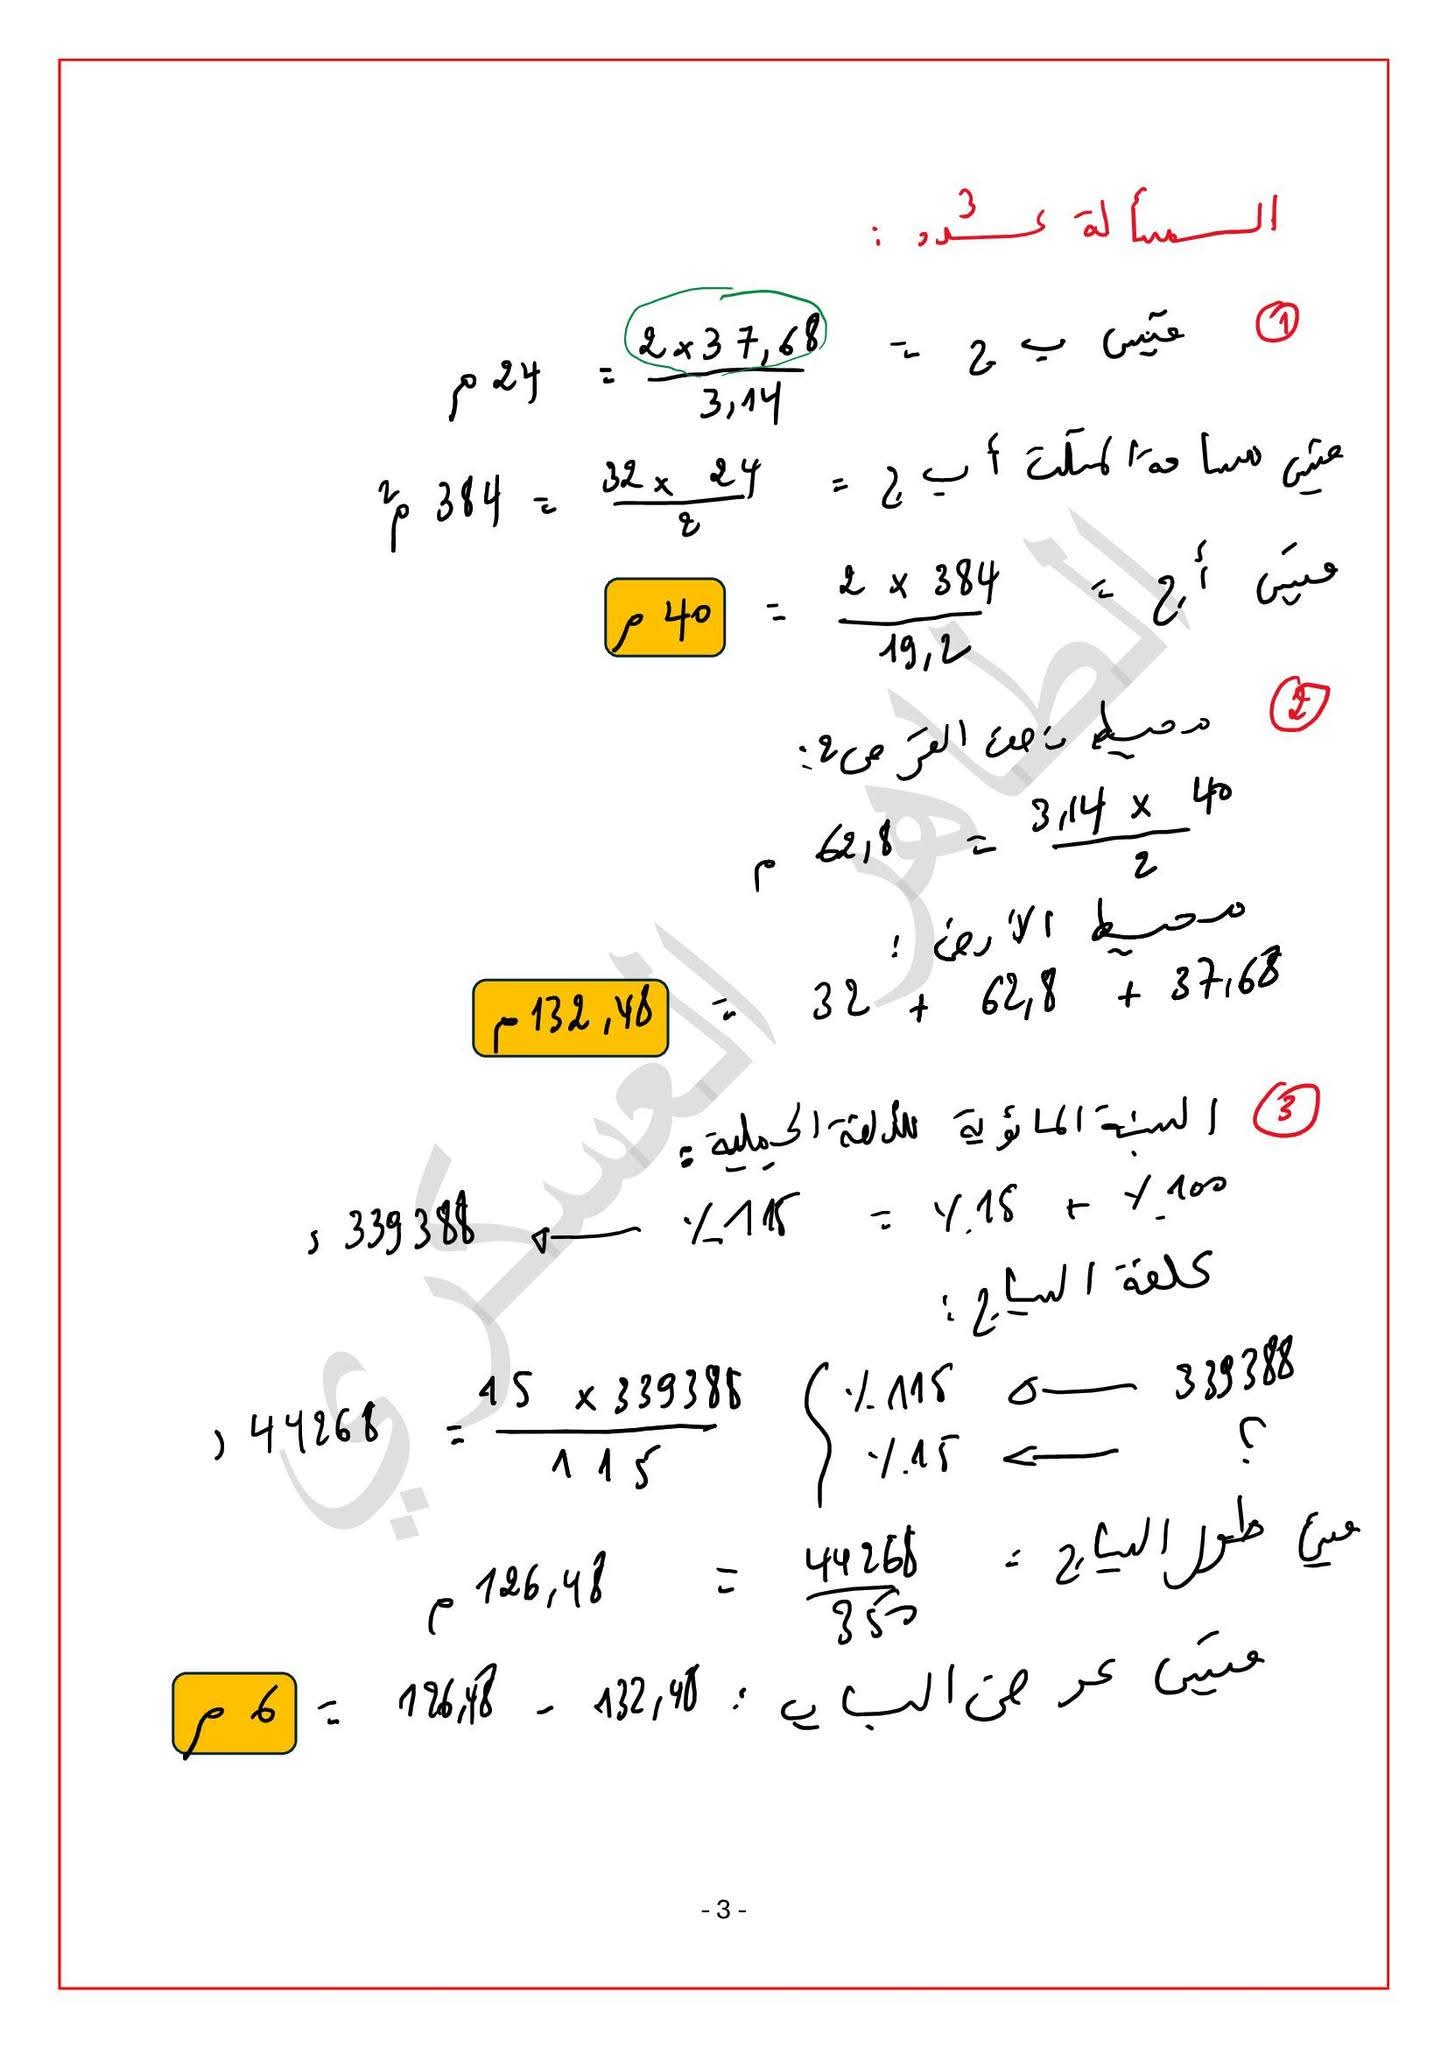 المسألة عدد 3 :
1
قيس ب ج = 2 × 37,68 / 3,14 = 24 م
قيس مساحة المثلث أ ب ج = 32 × 24 / 2 = 384 م²
قيس أ ج = 2 × 384 / 19,2 = 40 م
2
محيط نصف القرص 2 :
3,14 × 40 / 2 = 62,8 م
محيط الأرض :
37,68 + 62,8 + 32 = 132,48 م
3
النسبة المائوية للكلفة الجملية =
100 % + 15 % = 115 % ← 339388 د
كلفة السياج :
339388 → 115 %
؟ → 15 %
15 × 339388 / 115 = 44268 د
قيس طول السياج = 44268 / 350 = 126,48 م
قيس عرض الباب : 132,48 - 126,48 = 6 م
الطاهر العسكري
- 3 -